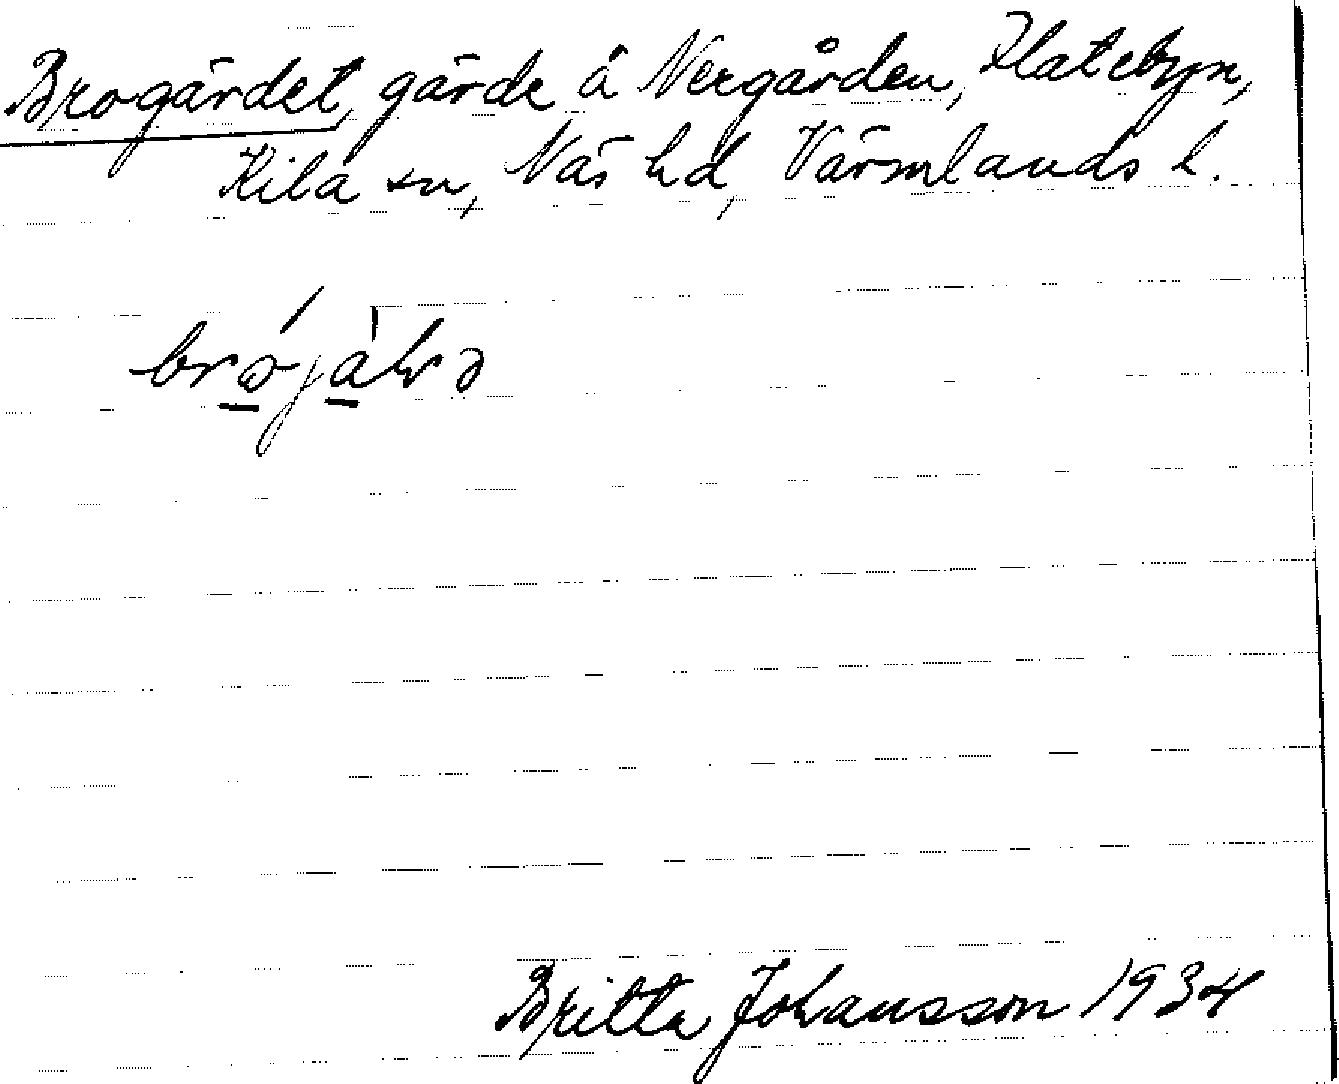 Brogärdet, gärde å Nergården, Platebyn,
Kila sn, Näs hd, Värmlands l.
Britta Johansson 1934